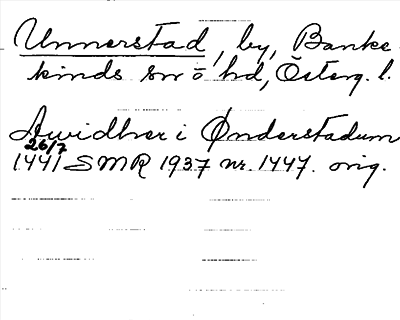 Unnerstad, by, Banke
kinds sn o hd, Österg. l.
Awidher i Ønderstadum
26/7
1441 SMR 1937 nr. 1447. orig.